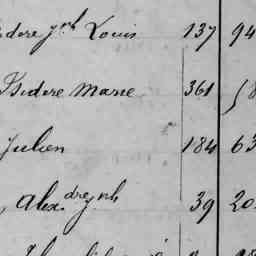 Isidore Jph Louis 137 94
Isidore Marie 361
Julien 184 63
Alex.dre Jph 39 20